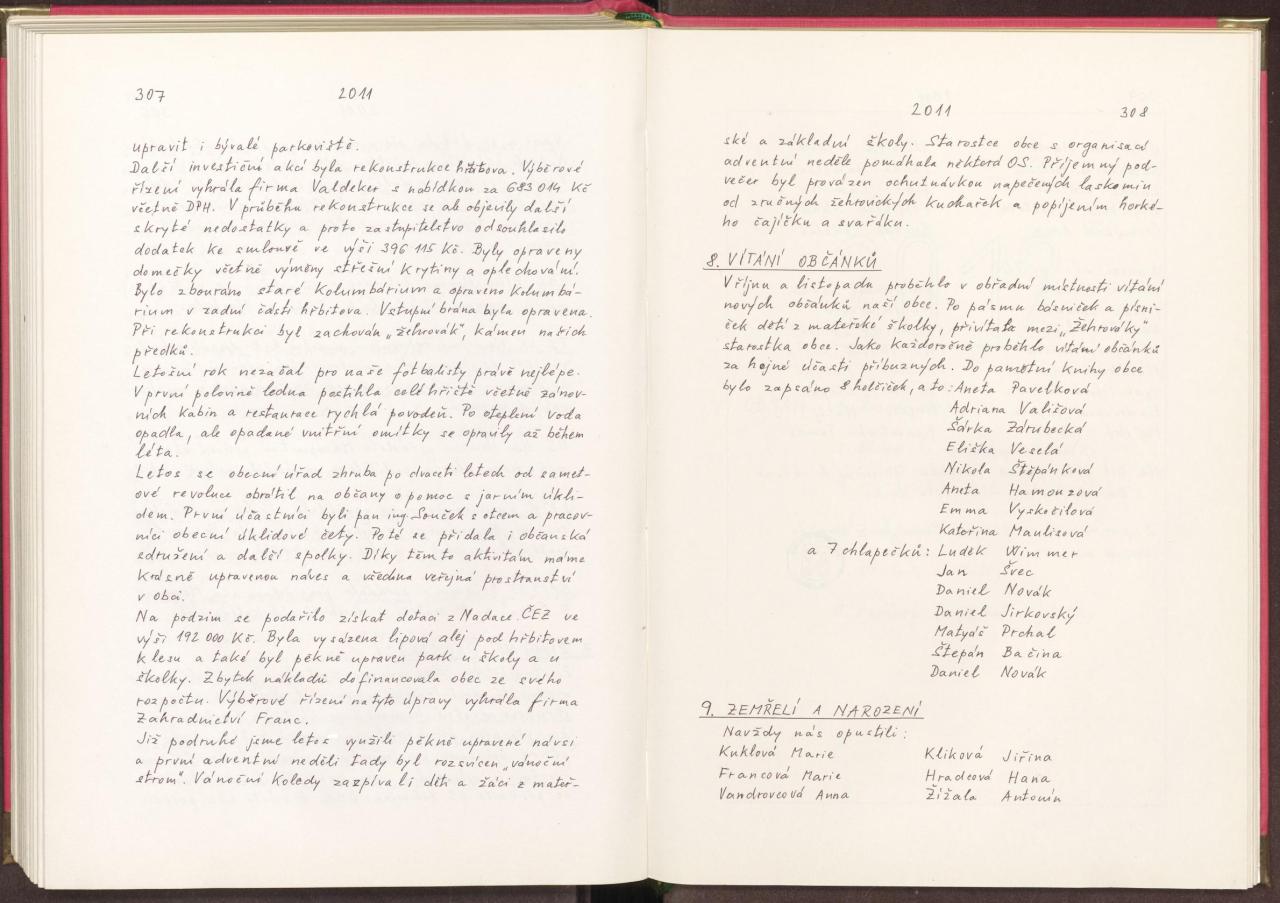 307 2011
upravit i bývalé parkoviště.
Další investiční akcí byla rekonstrukce hřbitova. Výběrové
řízení vyhrála firma Valdeker s nabídkou za 683 014 Kč
včetně DPH. V průběhu rekonstrukce se ale objevily další
skryté nedostatky a proto zastupitelstvo odsouhlasilo
dodatek ke smlouvě ve výši 396 115 Kč. Byly opraveny
domečky včetně výměny střešní krytiny a oplechování.
Bylo zbouráno staré kolumbárium a opraveno kolumbá-
rium v zadní části hřbitova. Vstupní brána byla opravena.
Při rekonstrukci byl zachován „žehrovák", kámen našich
předků.
Letošní rok nezačal pro naše fotbalisty právě nejlépe.
V první polovině ledna postihla celé hřiště včetně zánov-
ních kabin a restaurace rychlá povodeň. Po oteplení voda
opadla, ale opadané vnitřní omítky se opravily až během
léta.
Letos se obecní úřad zhruba po dvaceti letech od samet-
ové revoluce obrátil na občany o pomoc s jarním úkli-
dem. První účastníci byli pan ing. Souček s otcem a pracov-
níci obecní úklidové čety. Poté se přidala i občanská
sdružení a další spolky. Díky těmto aktivitám máme
krásně upravenou náves a všechna veřejná prostranství
v obci.
Na podzim se podařilo získat dotaci z Nadace ČEZ ve
výši 192 000 Kč. Byla vysázena lipová alej pod hřbitovem
k lesu a také byl pěkně upraven park u školy a u
školky. Zbytek nákladů dofinancovala obec ze svého
rozpočtu. Výběrové řízení na tyto úpravy vyhrála firma
Zahradnictví Franc.
Již podruhé jsme letos využili pěkně upravené návsi
a první adventní neděli tady byl rozsvícen „vánoční
strom". Vánoční koledy zazpívali děti a žáci z mateř-
2011 308
ské a základní školy. Starostce obce s organisací
adventní neděle pomáhala některá OS. Příjemný pod-
večer byl provázen ochutnávkou napečených laskomin
od zručných žehrovických kuchařek a popíjením horké-
ho čajíčku a svařáku.
8. VÍTÁNÍ OBČÁNKŮ
V říjnu a listopadu proběhlo v obřadní místnosti vítání
nových občánků naší obce. Po pásmu básniček a písni-
ček dětí z mateřské školky, přivítala mezi „Žehrováky"
starostka obce. Jako každoročně proběhlo vítání občánků
za hojné účasti příbuzných. Do pamětní knihy obce
bylo zapsáno 8 holčiček, a to: Aneta Pavelková
Adriana Vališová
Šárka Zdrubecká
Eliška Veselá
Nikola Štěpánková
Aneta Hamouzová
Emma Vyskočilová
Kateřina Maulisová
a 7 chlapečků: Luděk Wimmer
Jan Švec
Daniel Novák
Daniel Jirkovský
Matyáš Prchal
Štěpán Bačina
Daniel Novák
9. ZEMŘELÍ A NAROZENÍ
Navždy nás opustili:
Kuklová Marie Kliková Jiřina
Francová Marie Hradcová Hana
Vandrovcová Anna Žížala Antonín